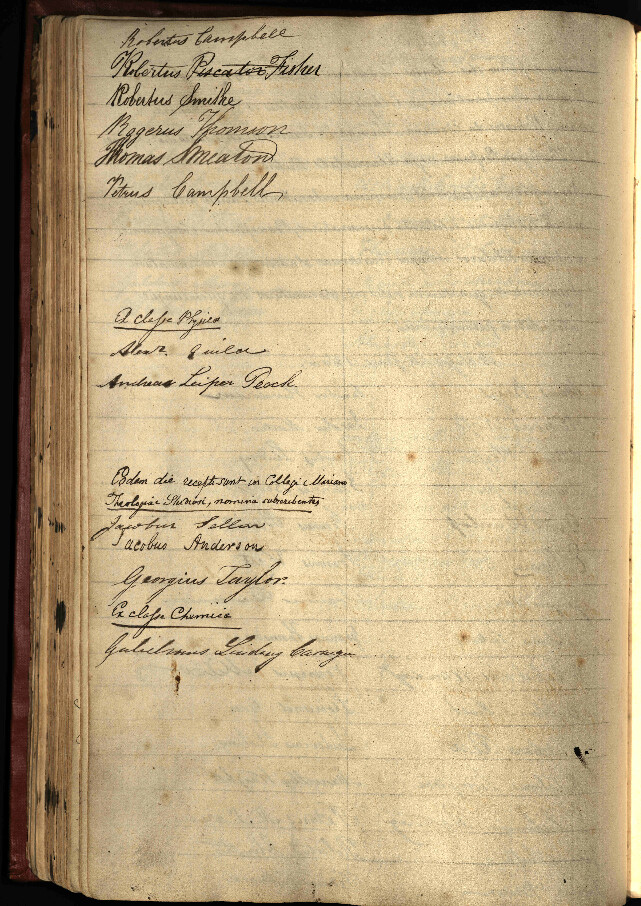 Robertus Campbell
Robertus Piscator Fisher
Robertus Smithe
Rogerus Thomson
Thomas Smeaton
Petrus Campbell
Ex classe Physica
Alexr.
Andreas Leiper Peock
Eodem die recepti sunt in Collegi Mariano
Theologiae Studiosi, nomina subscribentes
Jacobus Sellar
Jacobus Anderson
Georgius Taylor.
Ex classe Chemica
Gulielmus Lindsay Carnegie